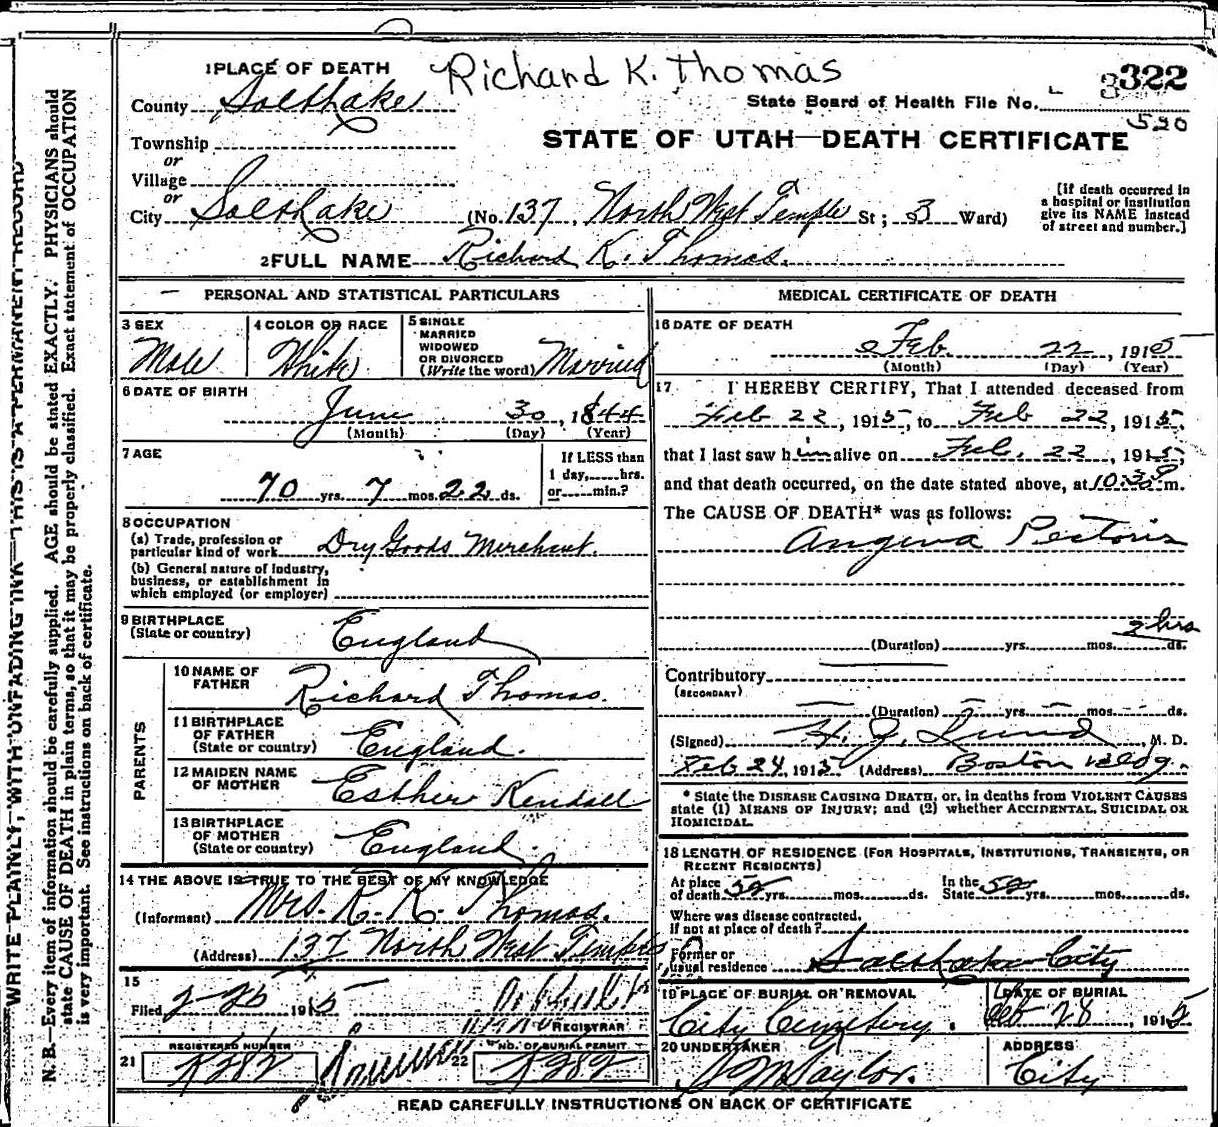 Richard K. Thomas
1 PLACE OF DEATH
322
County Salt Lake
State Board of Health File No.
520
Township
STATE OF UTAH—DEATH CERTIFICATE
or
Village
or
City Salt Lake (No. 137, North West Temple St; 3 Ward)
[If death occurred in
a hospital or institution
give its NAME instead
of street and number.]
2 FULL NAME Richard K. Thomas.
PERSONAL AND STATISTICAL PARTICULARS
3 SEX
Male
4 COLOR OR RACE
White
5 SINGLE
MARRIED
WIDOWED
OR DIVORCED
(Write the word) Married
6 DATE OF BIRTH
June 30, 1844
(Month) (Day) (Year)
7 AGE
70 yrs. 7 mos. 22 ds.
If LESS than
1 day,......hrs.
or......min.?
8 OCCUPATION
(a) Trade, profession or
particular kind of work Dry Goods Merchant.
(b) General nature of Industry,
business, or establishment in
which employed (or employer)
9 BIRTHPLACE
(State or country) England
PARENTS
10 NAME OF
FATHER Richard Thomas.
11 BIRTHPLACE
OF FATHER
(State or country) England.
12 MAIDEN NAME
OF MOTHER Esther Kendall
13 BIRTHPLACE
OF MOTHER
(State or country) England.
14 THE ABOVE IS TRUE TO THE BEST OF MY KNOWLEDGE
(Informant) Mrs. R. K. Thomas.
(Address) 137 North West Temple
15
Filed 2-26 1915
REGISTRAR
REGISTERED NUMBER
21
22 NO. OF BURIAL PERMIT
MEDICAL CERTIFICATE OF DEATH
16 DATE OF DEATH
Feb. 22, 1915
(Month) (Day) (Year)
17 I HEREBY CERTIFY, That I attended deceased from
Feb 22, 1915, to Feb 22, 1915,
that I last saw him alive on Feb. 22, 1915,
and that death occurred, on the date stated above, at 10:30 P m.
The CAUSE OF DEATH* was as follows:
Angina Pectoris
2 hrs
(Duration) yrs. mos. ds.
Contributory
(SECONDARY)
(Duration) yrs. mos. ds.
(Signed) H. J. Lund, M. D.
Feb 24, 1915 (Address) Boston Bldg.
* State the DISEASE CAUSING DEATH, or, in deaths from VIOLENT CAUSES
state (1) MEANS OF INJURY; and (2) whether ACCIDENTAL, SUICIDAL OR
HOMICIDAL.
18 LENGTH OF RESIDENCE (FOR HOSPITALS, INSTITUTIONS, TRANSIENTS, OR
RECENT RESIDENTS)
At place
of death 52 yrs. mos. ds.
In the
State 52 yrs. mos. ds.
Where was disease contracted,
if not at place of death?
Former or
usual residence Salt Lake City
19 PLACE OF BURIAL OR REMOVAL
City Cemetery.
DATE OF BURIAL
Feb 28, 1915
20 UNDERTAKER
S M Taylor.
ADDRESS
City
READ CAREFULLY INSTRUCTIONS ON BACK OF CERTIFICATE
WRITE PLAINLY, WITH UNFADING INK—THIS IS A PERMANENT RECORD
N. B.—Every item of information should be carefully supplied. AGE should be stated EXACTLY. PHYSICIANS should
state CAUSE OF DEATH in plain terms, so that it may be properly classified. Exact statement of OCCUPATION
is very important. See instructions on back of certificate.